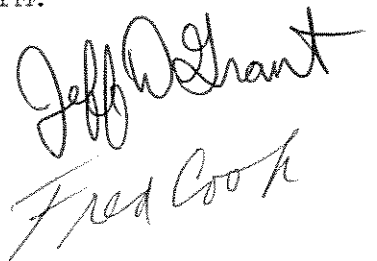 Jeff D Grant
Fred Cook